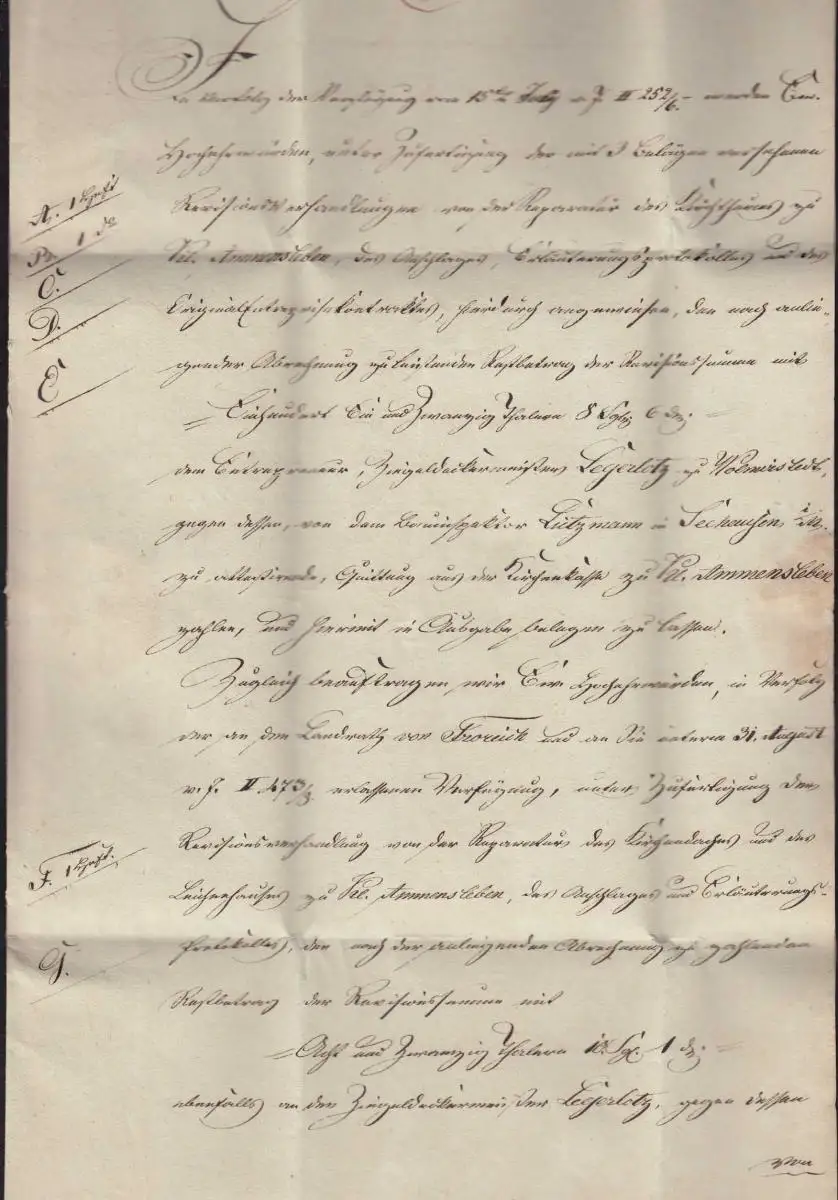 In Verfolg der Verfügung vom 15ten July v. J. II 252/6. werden Ew.
Hochehrwürden, unter Zufertigung der mit 3 Belägen versehenen
A. 1 Heft
Revisionsverhandlungen von der Reparatur des Kirchthurms zu
B. 1 do
Kl. Ammensleben, des Anschlages, Erläuterungsprotokolles und des
C.
OriginalEntreprisekontraktes, hierdurch angewiesen, den nach anlie-
D.
gender Abrechnung zu leistenden Restbetrag der Revisionssumme mit
E
= Einhundert Ein und Zwanzig Thalern 8 Sgr. 6 d. =
dem Entrepreneur, Ziegeldeckermeister Legerlotz zu Wolmirstedt,
gegen dessen, von dem Bauinspektor Lützmann in Seehausen i. M.
zu attestirende, Quittung aus der Kirchenkasse zu Kl. Ammensleben
zahlen, und hiermit in Ausgabe belegen zu lassen.
Zugleich beauftragen wir Ew. Hochehrwürden, in Verfolg
der an den Landrath von Froreich und an Sie unterm 31. August
v. J. II 473/8. erlassenen Verfügung, unter Zufertigung der
Revisionsverhandlung von der Reparatur des Kirchendaches und des
F. 1 Heft.
Leichenhauses zu Kl. Ammensleben, des Anschlages und Erläuterungs-
Protokolles, den nach der anliegenden Abrechnung zu zahlenden
G.
Restbetrag der Revisionssumme mit
= Acht und Zwanzig Thalern Sgr. 1 d. =
ebenfalls an den Ziegeldeckermeister Legerlotz, gegen dessen
von